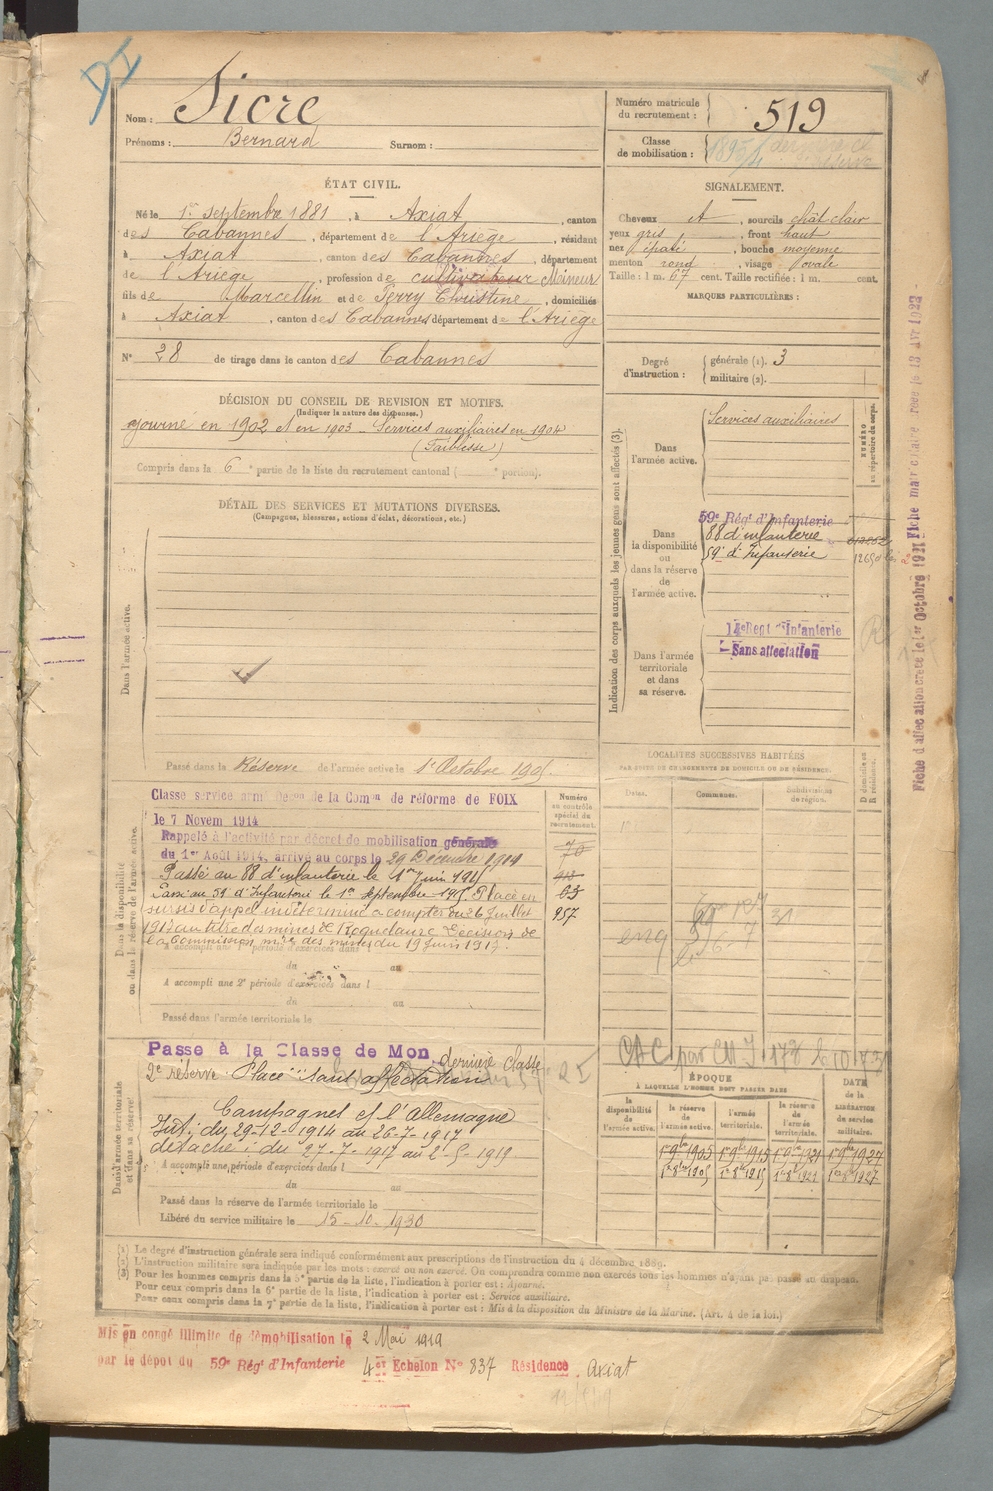 DI
Nom : Sicre
Prénoms : Bernard Surnom :
Numéro matricule du recrutement : 519
Classe de mobilisation :
ÉTAT CIVIL.
Né le 1er septembre 1881, à Axiat, canton
des Cabannes, département de l'Ariège, résidant
à Axiat, canton des Cabannes, département
de l'Ariège, profession de cultivateur Mineur
fils de Marcellin et de Ferry Christine, domiciliés
à Axiat, canton des Cabannes département de l'Ariège
N° 28 de tirage dans le canton des Cabannes
SIGNALEMENT.
Cheveux et, sourcils chât clair
yeux gris, front haut
nez épaté, bouche moyenne
menton rond, visage ovale
Taille : 1 m. 67 cent. Taille rectifiée : 1 m. cent.
MARQUES PARTICULIÈRES :
Degré d'instruction :
générale (1). 3
militaire (2).
DÉCISION DU CONSEIL DE REVISION ET MOTIFS.
(Indiquer la nature des dispenses.)
Ajourné en 1902 et en 1903 – Services auxiliaires en 1904
(Faiblesse)
Compris dans la 6e partie de la liste du recrutement cantonal ( e portion).
DÉTAIL DES SERVICES ET MUTATIONS DIVERSES.
(Campagnes, blessures, actions d'éclat, décorations, etc.)
Dans l'armée active.
Passé dans la Réserve de l'armée active le 1er Octobre 190
Indication des corps auxquels les jeunes gens sont affectés (3).
NUMÉRO au répertoire du corps.
Dans l'armée active.
Services auxiliaires
Dans la disponibilité ou dans la réserve de l'armée active.
59e Régt d'Infanterie
88 d'infanterie
59e d'Infanterie
Dans l'armée territoriale et dans sa réserve.
14e Regt d'Infanterie
Sans affectation
Fiche d'affectation créée le 1er Octobre 1921 Fiche matriculaire
LOCALITÉS SUCCESSIVES HABITÉES
PAR SUITE DE CHANGEMENTS DE DOMICILE OU DE RÉSIDENCE.
Dates. Communes. Subdivisions de région. D domicile ou R résidence.
Dans la disponibilité ou dans la réserve de l'armée active.
Classé service armé Déc de la Comon de réforme de FOIX
le 7 Novem 1914
Rappelé à l'activité par décret de mobilisation générale
du 1er Août 1914, arrivé au corps le 29 Décembre 1914
Passé au 88 d'infanterie le 1er Juin 1915
Passé au 59 d'Infanterie le 1er septembre 1915 Placé en
sursis d'appel indéterminé à compter du 26 Juillet
1917 au titre des mines de Roquelaure Décision de
la Commission mre des mines du 19 Juin 1917.
Numéro au contrôle spécial du recrutement.
70
63
957
A accompli une 1re période d'exercices dans l
du au
A accompli une 2e période d'exercices dans l
du au
Passé dans l'armée territoriale le
Dans l'armée territoriale et dans sa réserve.
Passé à la Classe de Mon dernière classe
2e réserve Placé sans affectation
Campagnes et l'Allemagne
Int; du 29-12-1914 au 26-7-1917
détaché; du 27-7-1917 au 2-5-1919
A accompli une période d'exercices dans l
du au
Passé dans la réserve de l'armée territoriale le
Libéré du service militaire le 15-10-1930
ÉPOQUE
À LAQUELLE L'HOMME DOIT PASSER DANS
la disponibilité de l'armée active.
la réserve de l'armée active.
l'armée territoriale.
la réserve de l'armée territoriale.
DATE de la LIBÉRATION du service militaire.
1er 9bre 1905 1er 9bre 1915 1er 9bre 1921 1er 9bre 1927
1er 8bre 1905 1er 8bre 1915 1er 8bre 1921 1er 8bre 1927
(1) Le degré d'instruction générale sera indiqué conformément aux prescriptions de l'instruction du 4 décembre 1889.
(2) L'instruction militaire sera indiquée par les mots : exercé ou non exercé. On comprendra comme non exercés tous les hommes n'ayant pas passé au drapeau.
(3) Pour les hommes compris dans la 5e partie de la liste, l'indication à porter est : Ajourné.
Pour ceux compris dans la 6e partie de la liste, l'indication à porter est : Service auxiliaire.
Pour ceux compris dans la 7e partie de la liste, l'indication à porter est : Mis à la disposition du Ministre de la Marine. (Art. 4 de la loi.)
Mis en congé illimité de démobilisation le 2 Mai 1919
par le dépôt du 59e Régt d'Infanterie 4er Echelon N° 837 Résidence Axiat